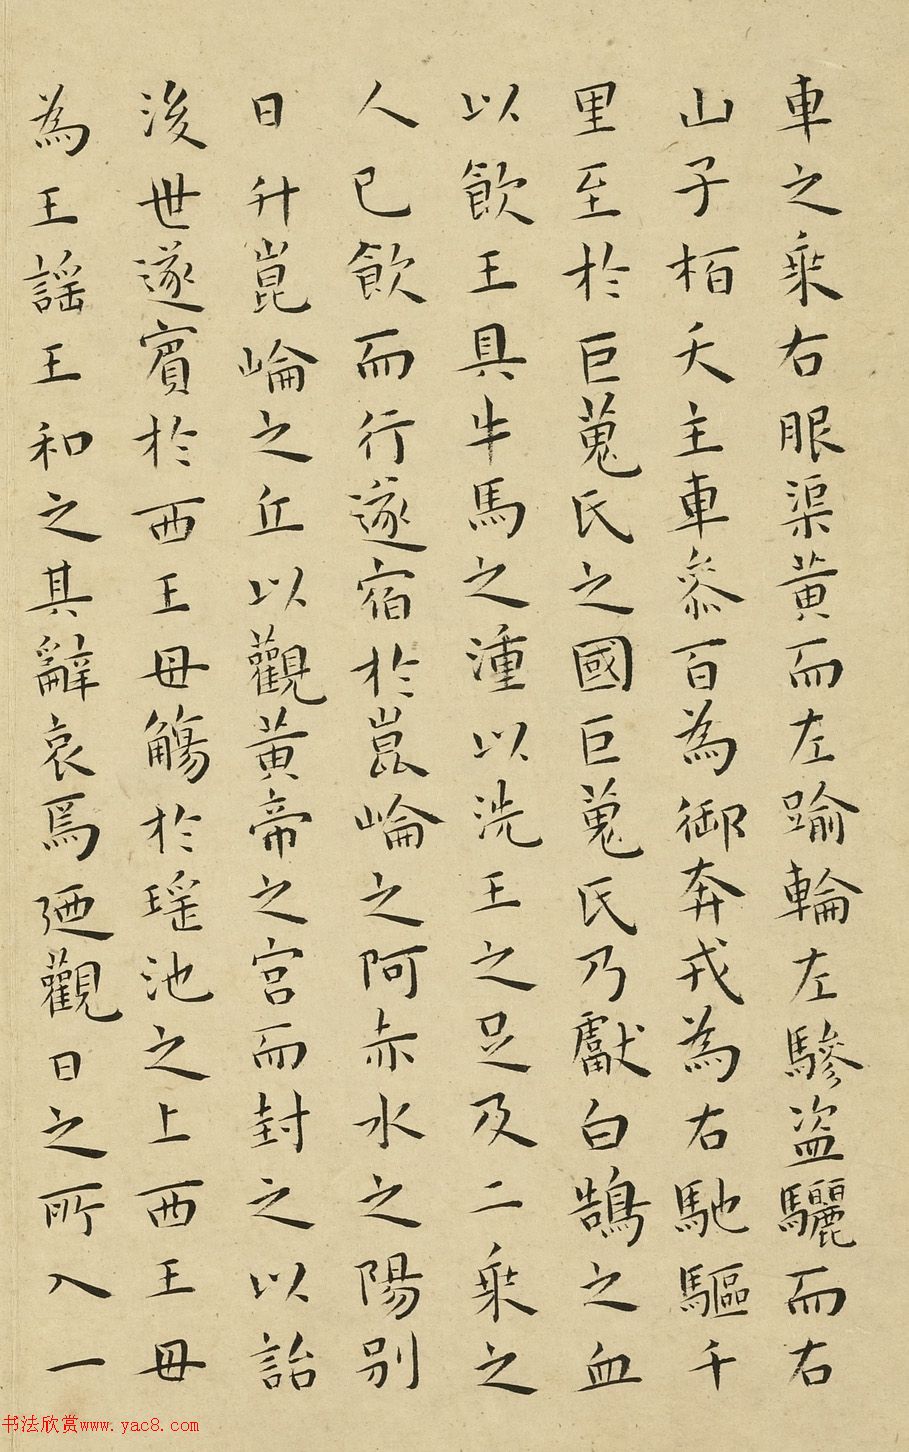 車之乘右服渠黃而左踰輪左驂盜驪而右
山子栢夭主車叅百為御奔戎為右馳驅千
里至於巨蒐氏之國巨蒐氏乃獻白鵠之血
以飲王具牛馬之湩以洗王之足及二乘之
人已飲而行遂宿於崑崙之阿赤水之陽別
日升崑崙之丘以觀黃帝之宮而封之以詒
後世遂賓於西王母觴於瑤池之上西王母
為王謠王和之其辭哀焉廼觀日之所入一
书法欣赏www.yac8.com